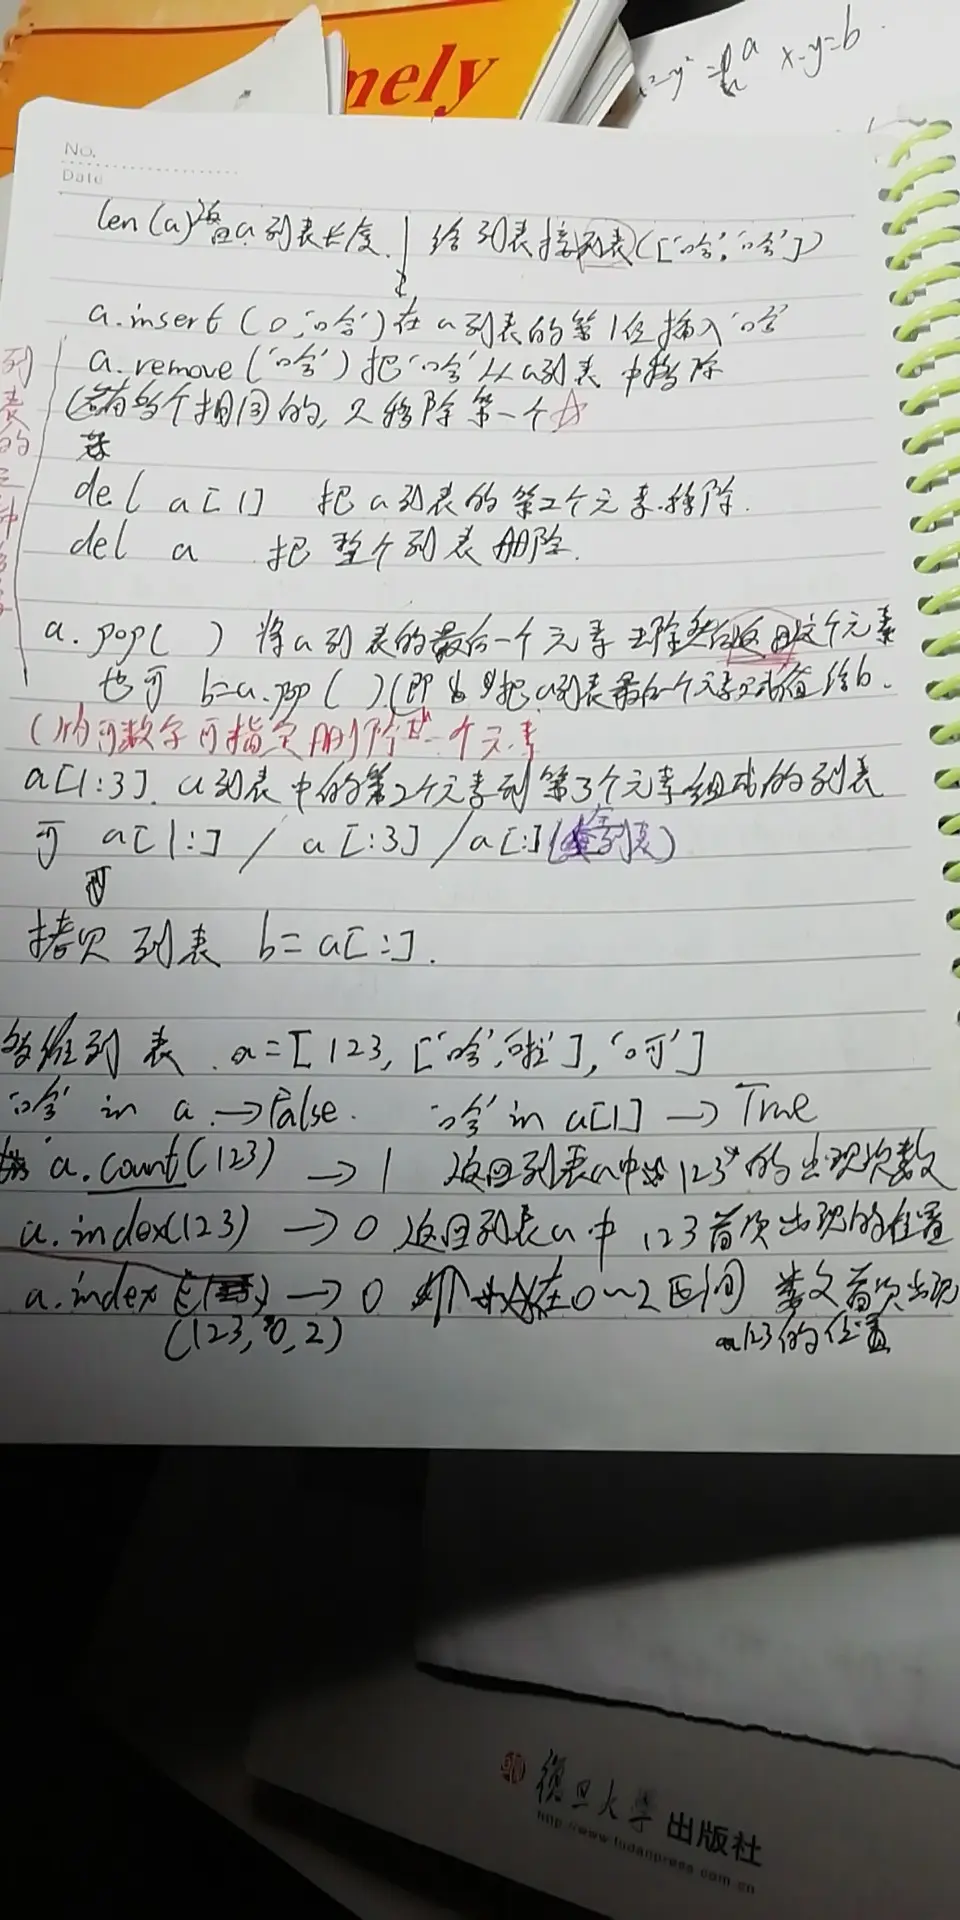 nely
x-y=b
No.
Date
len(a)返回a列表长度. 给列表接列表(['哈','哈'])
a.insert(0,'哈')在a列表的第1位插入'哈'
a.remove('哈')把'哈'从a列表中移除
(若有多个相同的,只移除第一个☆
列表的三种
del a[1] 把a列表的第2个元素移除.
del a 把整个列表删除.
a.pop( ) 将a列表的最后一个元素去除然后返回这个元素
也可 b=a.pop( )(即把a列表最后一个元素赋值给b.
( )内可数字可指定删除某一个元素
a[1:3]. a列表中的第2个元素到第3个元素组成的列表
可 a[1:] / a[:3] / a[:](整列表)
拷贝列表 b=a[:].
多维列表. a=[123,['哈','啦'],'呵']
'哈' in a → False. '哈' in a[1] → True
a.count(123) → 1 返回列表a中123的出现次数
a.index(123) → 0 返回列表a中123首次出现的位置
a.index → 0 在0~2区间 首次出现
(123,0,2) 123的位置
復旦大学出版社
http://www.fudanpress.com.cn